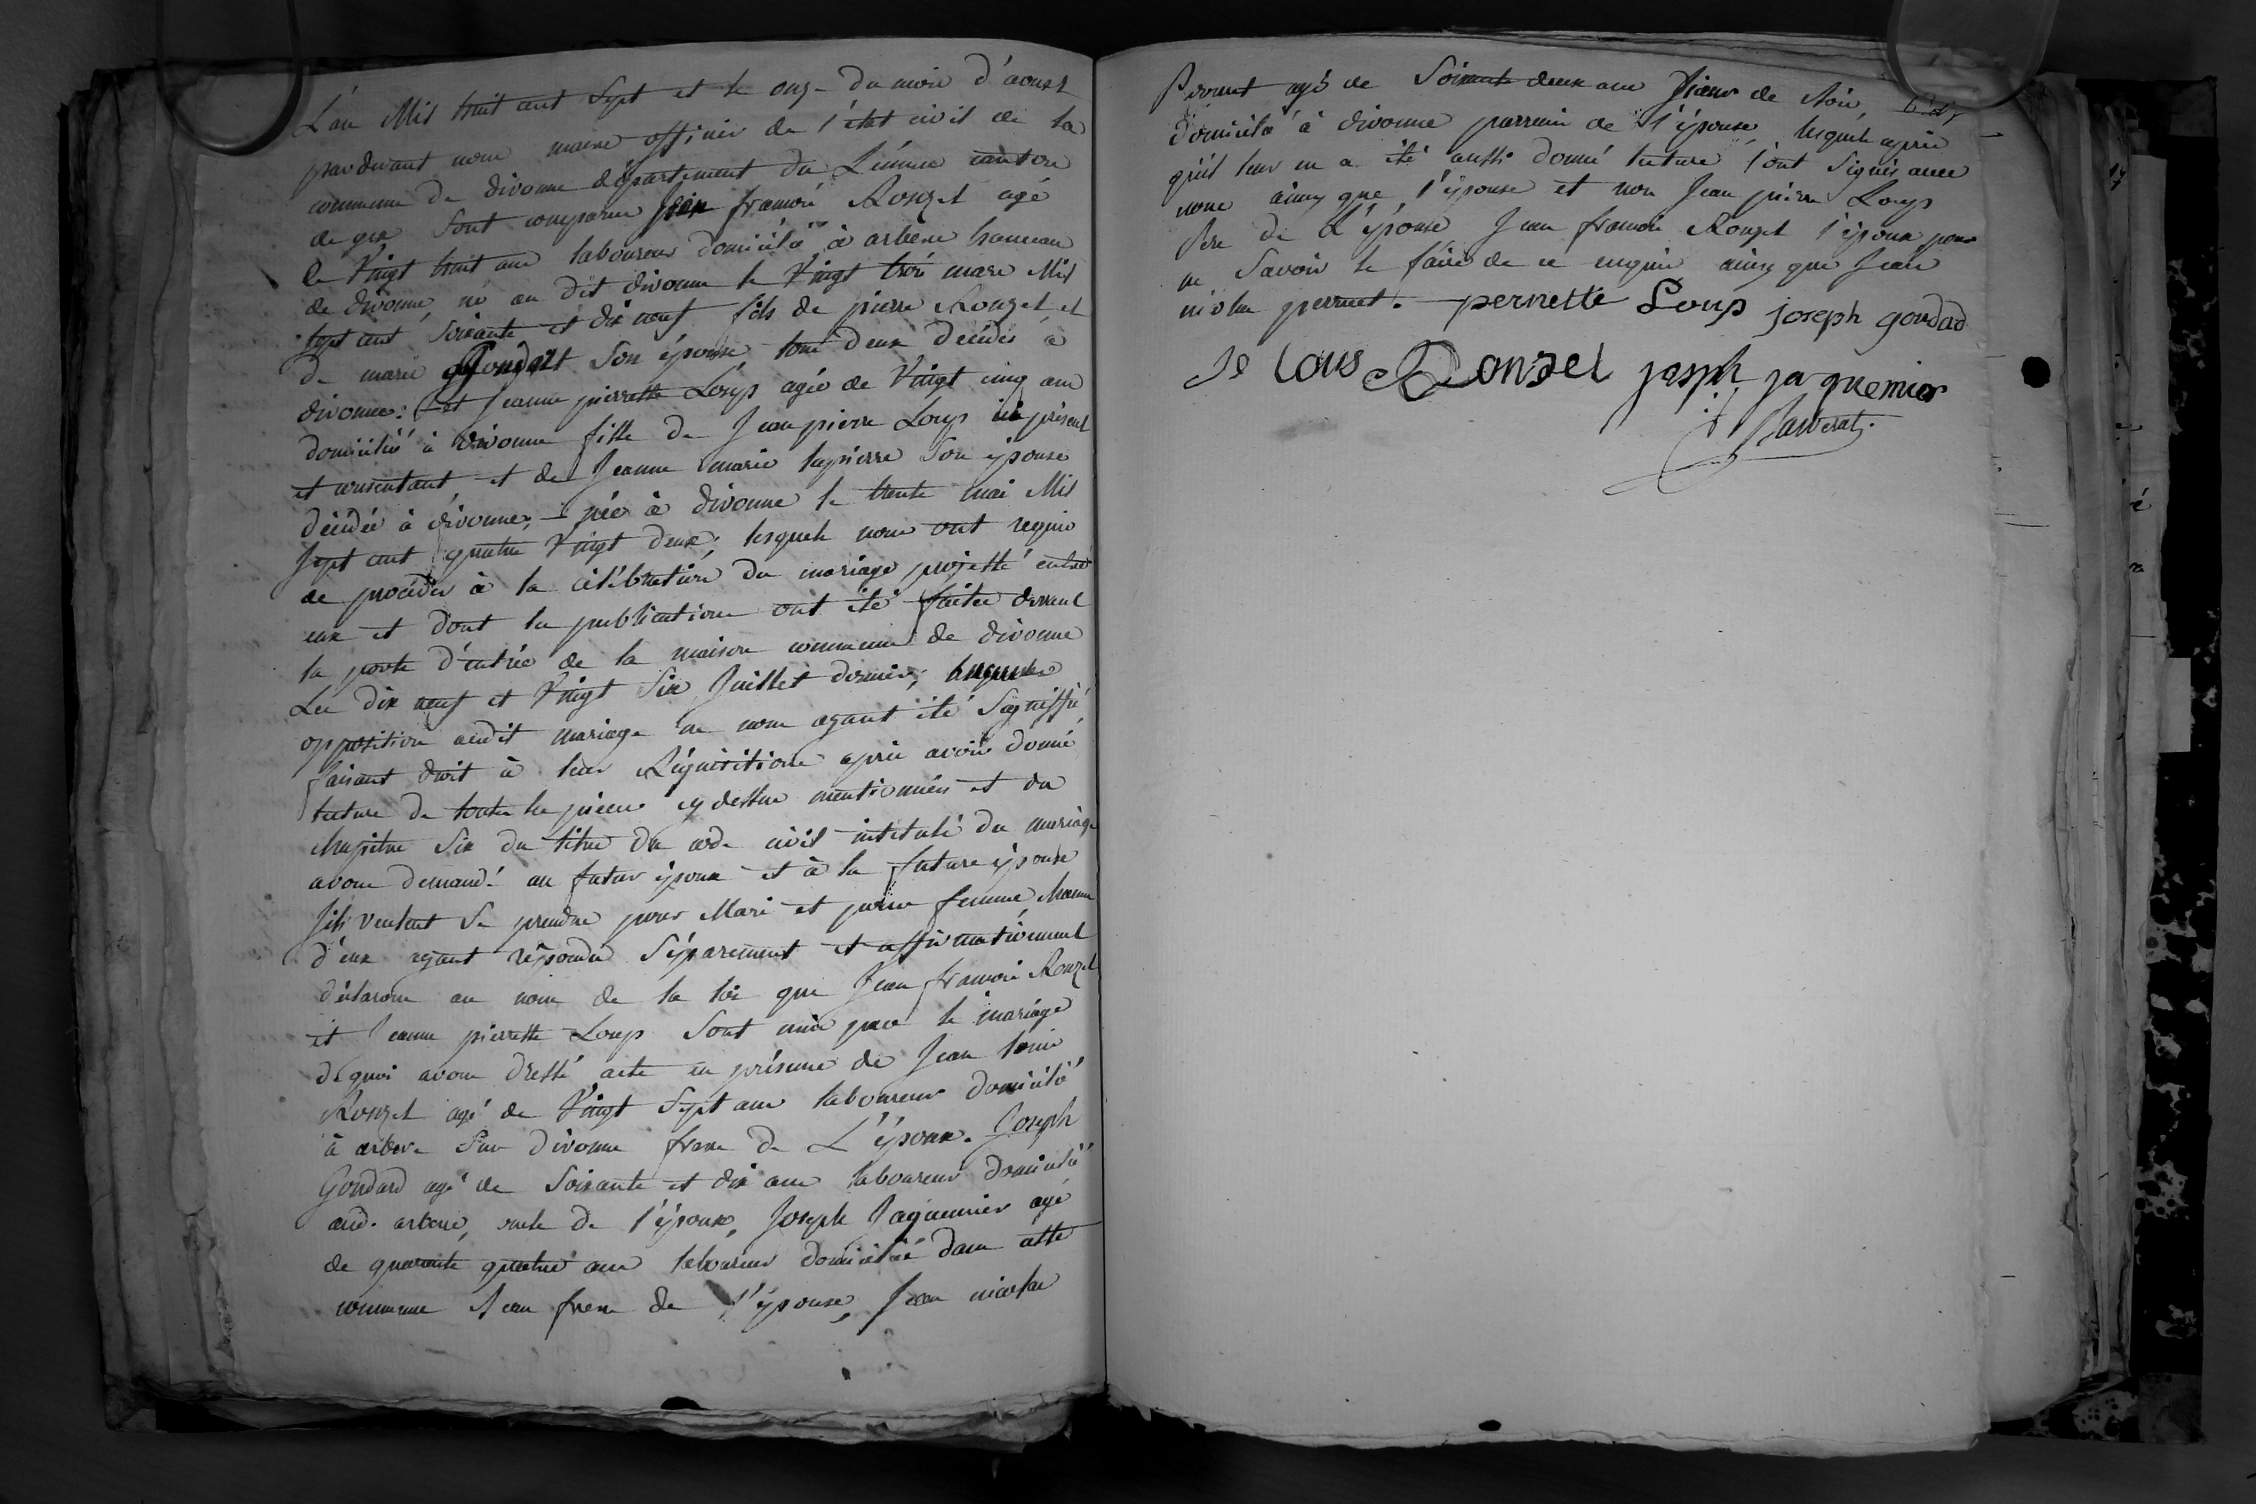 L'an Mil huit cent Sept et le onz- du mois d'aoust
pardevant nous maire officier de l'état civil de la
commune de divonne département du Léman canton
de gex Sont comparus Jean francois Rouzet agé
de Vingt huit ans laboureur domicilié à arbere hameau
de divonne, né au dit divonne le Vingt trois mars Mil
Sept cent Soixante et dix neuf fils de pierre Rouzet et
de marie Son épouse tous deux décédés à
divonne: et Jeanne pierrette Loups agée de Vingt cinq ans
domiciliée à divonne fille de Jean pierre Loups ici présent
et consentant et de Jeanne marie lapierre Son épouse
décédée à divonne, née à divonne le trente mai Mil
Sept cent quatre Vingt deux; lesquels nous ont requis
de procéder à la célébration du mariage projetté entre
eux et dont les publications ont été faites devant
la porte d'entrée de la maison commune de divonne
Les dix neuf et Vingt Six Juillet dernier;
opposition audit mariage ne nous ayant été Signiffié
faisant droit à leur Réquisition après avoir donné
lecture de toutes les pièces cy dessus mentionnées et du
chapitre Six du titre du code civil intitulé du mariage
avons demandé au futur époux et à la future épouse
S'ils veulent Se prendre pour Mari et pour femme, chacun
d'eux ayant répondu Séparement et affirmativement
déclarons au nom de la loi que Jean francois Rouzet
et Jeanne pierrette Loups Sont unis par le mariage
de quoi avons dressé acte en présence de Jean louis
Rouzet agé de Vingt Sept ans laboureur domicilié
à arbere Sur divonne frere de L'époux. Joseph
Gondard agé de Soixante et dix ans laboureur domicilié
aud. arbere, oncle de l'époux, Joseph Jaquemier agé
de quarante quatre ans laboureur domicilié dans cette
commune frere de l'épouse, Jean nicolas
Perruet agé de Soixante deux ans de Soie
domicilié à divonne parrain de l'épouse, lesquels après
qu'il leur en a été aussi donné lecture l'ont Signés avec
nous ainsy que l'épouse et non Jean pierre Loups
Pere de L'épouse Jean francois Rouzet l'époux pour
ne Savoir le faire de ce enquis ainsy que Jean
nicolas perruet. pernette Loups joseph gondad
Je lous Ronzel joseph jaquemier